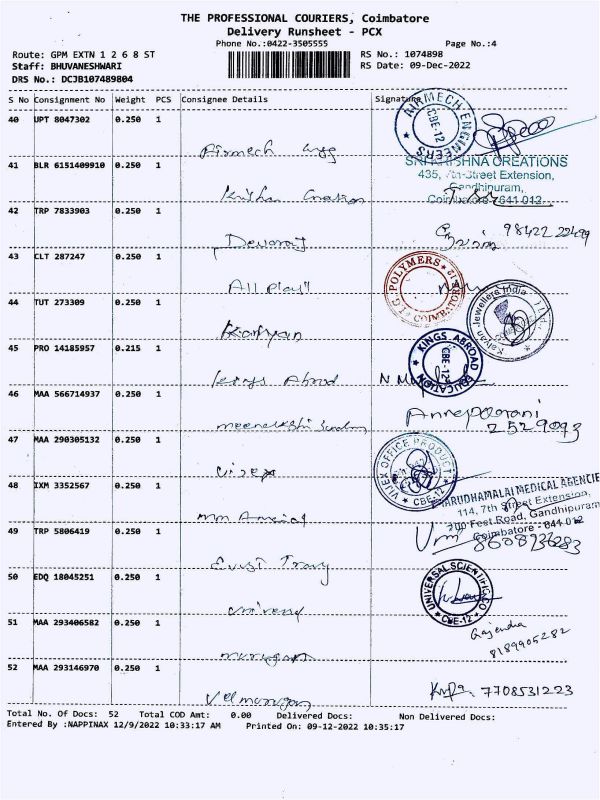 THE PROFESSIONAL COURIERS, Coimbatore
Delivery Runsheet - PCX
Phone No.:0422-3505555 Page No.:4
Route: GPM EXTN 1 2 6 8 ST RS No.: 1074898
Staff: BHUVANESHWARI RS Date: 09-Dec-2022
DRS No.: DCJB107489804
S No Consignment No Weight PCS Consignee Details Signature
AIRMECH ENGINEERS CBE-12
40 UPT 8047302 0.250 1
Airmech
SRI KRISHNA CREATIONS
41 BLR 6151409910 0.250 1
435, 7th Street Extension,
Gandhipuram,
Coimbatore - 641 012.
42 TRP 7833903 0.250 1
98422 22499
Devaraj
43 CLT 287247 0.250 1
POLYMERS COIMBATORE
All play
44 TUT 273309 0.250 1
Kalyan Jewellers India
Kalyan
45 PRO 14185957 0.215 1
KINGS ABROAD EDUCATION CBE-12
Kings Abroad
46 MAA 566714937 0.250 1
Annapoorani
2529093
47 MAA 290305132 0.250 1
VIJEX OFFICE PRODUCT CBE-12
Vijex
48 IXM 3352567 0.250 1
MARUDHAMALAI MEDICAL AGENCIE
114, 7th Street Extension,
100 Feet Road, Gandhipuram
Coimbatore - 641 012
49 TRP 5806419 0.250 1
50 EDQ 18045251 0.250 1
UNIVERSAL SCIENTIFIC CBE-12
51 MAA 293406582 0.250 1
Gajendra
8189905282
Murugan
52 MAA 293146970 0.250 1
7708531223
Velmurugan
Total No. Of Docs: 52 Total COD Amt: 0.00 Delivered Docs: Non Delivered Docs:
Entered By :NAPPINAX 12/9/2022 10:33:17 AM Printed On: 09-12-2022 10:35:17